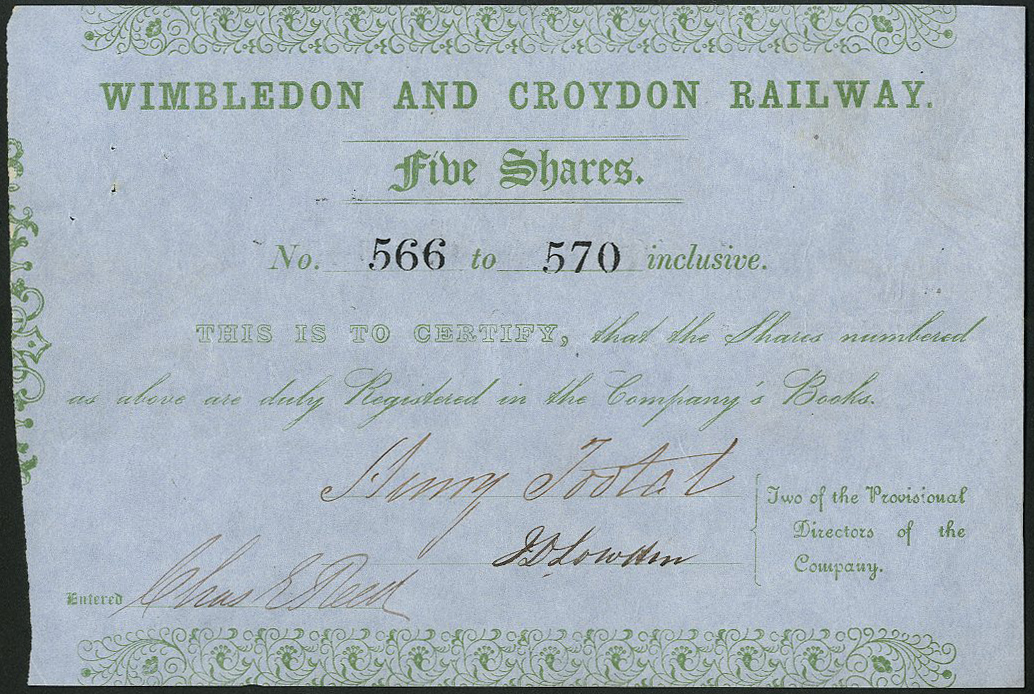 WIMBLEDON AND CROYDON RAILWAY.
Five Shares.
No. 566 to 570 inclusive.
THIS IS TO CERTIFY, that the Shares numbered
as above are duly Registered in the Company's Books.
Henry Tootal
Two of the Provisional
Directors of the
Company.
Entered Chas E